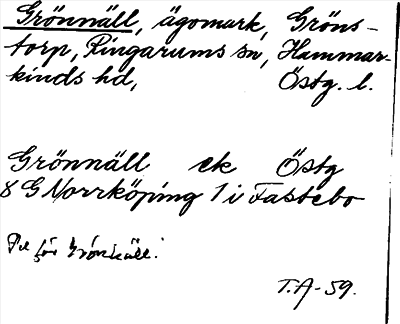 Grönnäll, ägomark, Gröns-
torp, Ringarums sn, Hammar-
kinds hd, Östg. l.
Grönnäll ek Östg
8 G Norrköping 1 i Fastebo
för Grönnäll.
T.A-59.